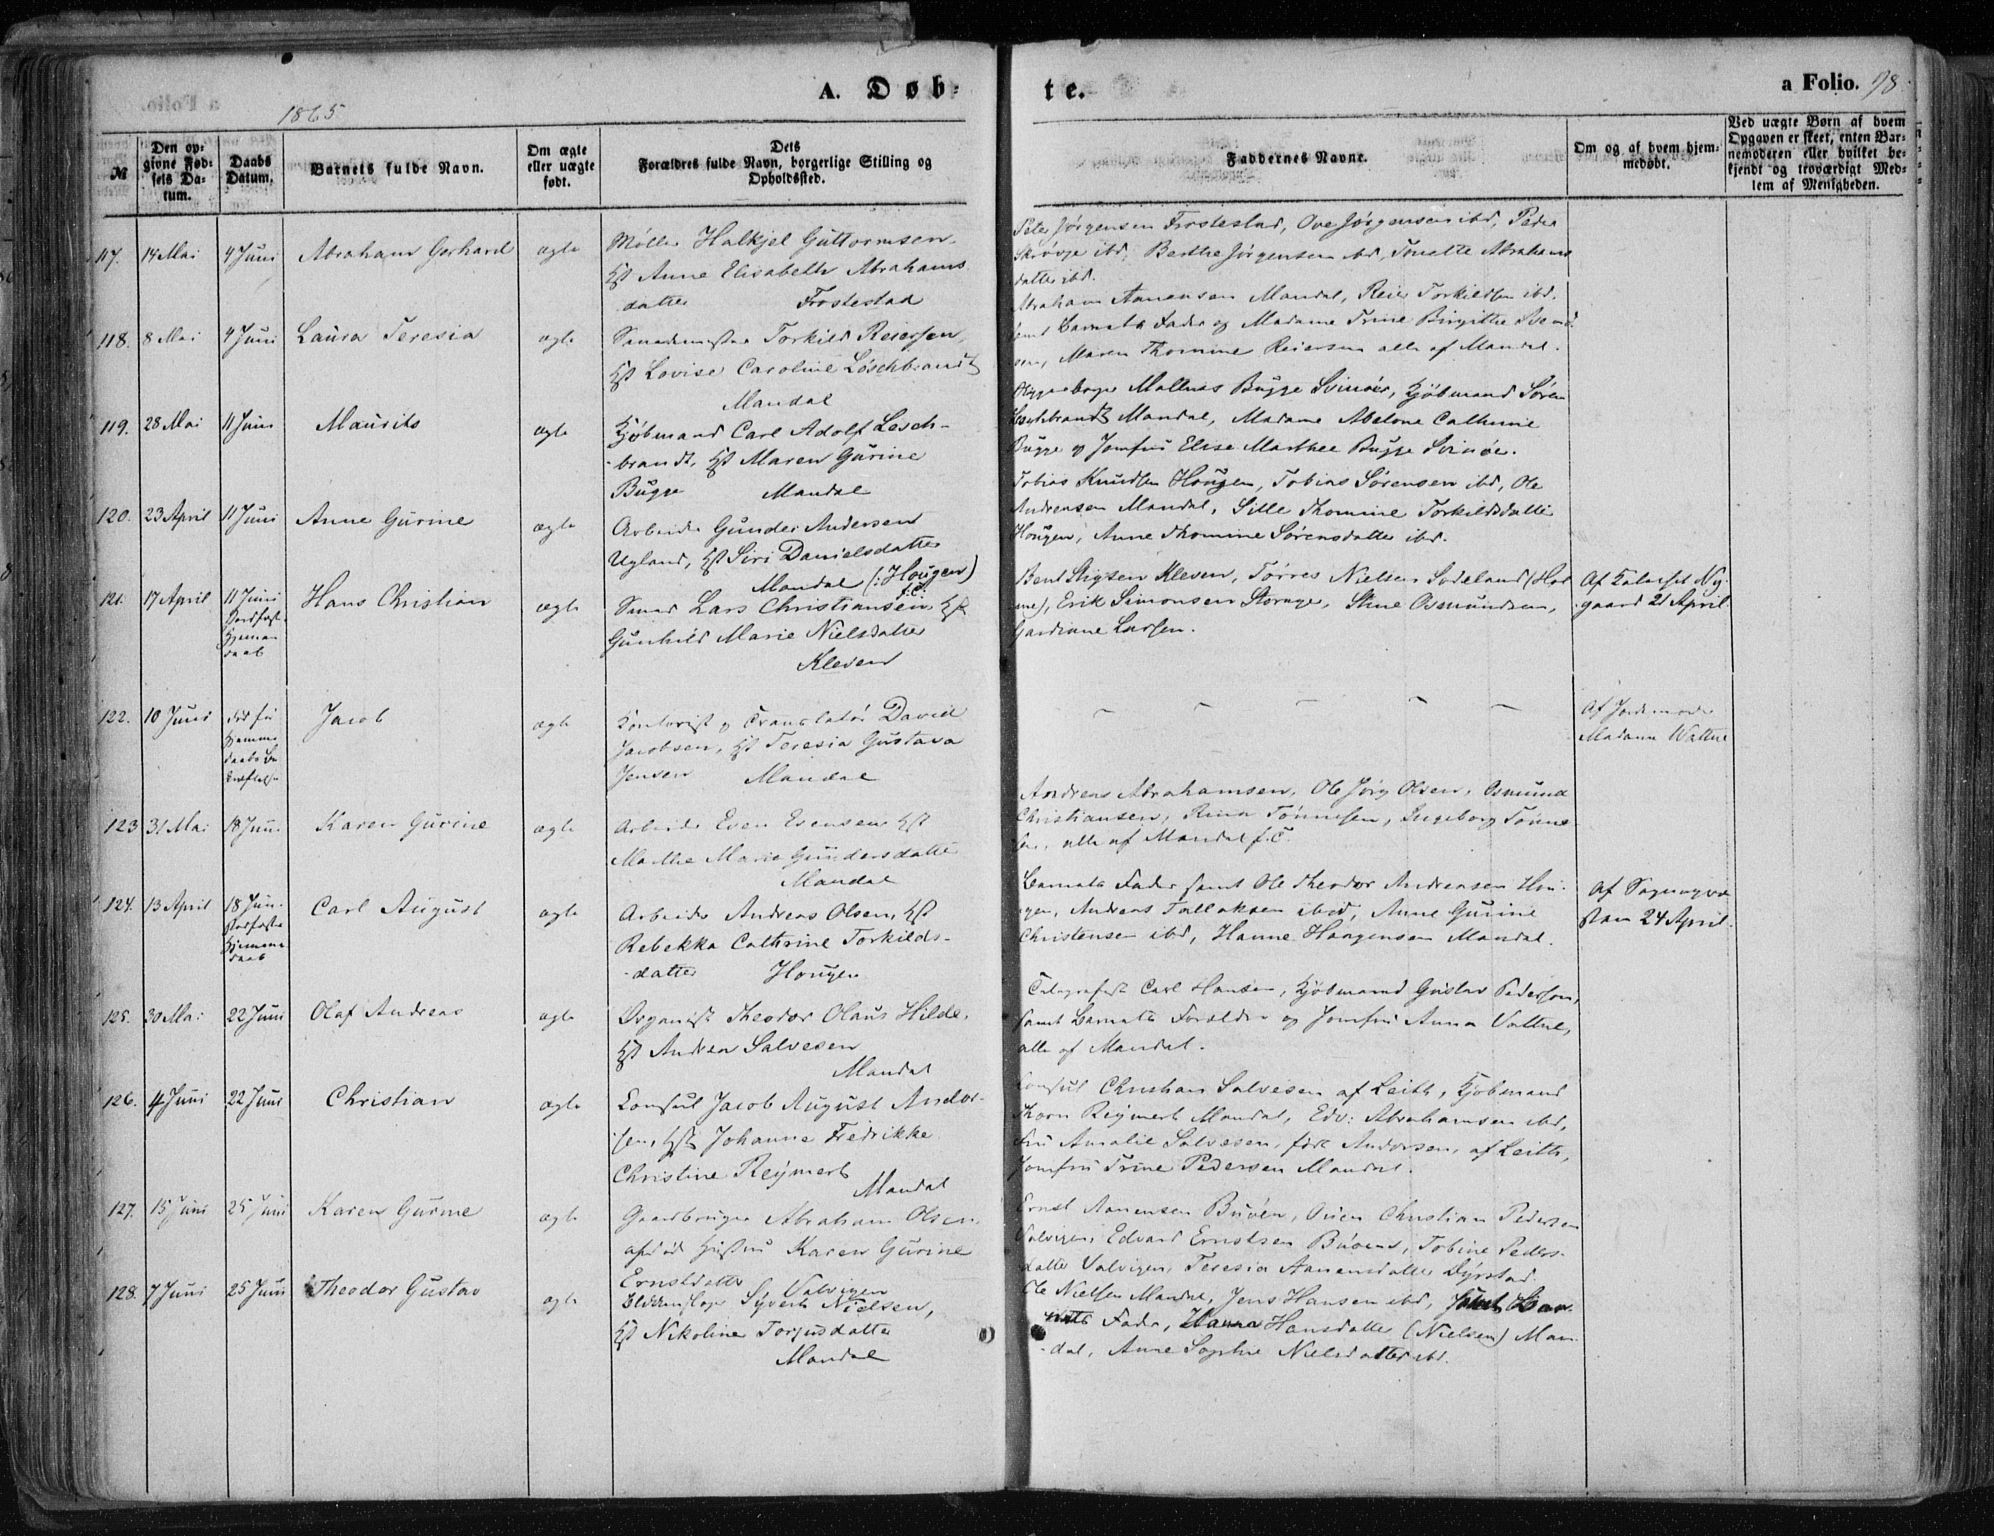 A. Døb-
te.
a Folio. 98
1865
№
Den opgivne Fødsels Datum.
Daabs Datum.
Barnets fulde Navn.
Om ægte eller uægte født.
Dets Forældres fulde Navn, borgerlige Stilling og Opholdssted.
Faddernes Navne.
Om og af hvem hjemmedøbt.
Ved uægte Børn af hvem Opgaven er skeet, enten Barnemoderen eller hvilket bekjendt og troværdigt Medlem af Menigheden.
117. 14 Mai 4 Juni Abraham Gerhard ægte
Møller Halkjel Guttormsen,
Hst Anne Elisabeth Abrahams
datter Frostestad
Peter Jørgensen Frostestad, Ove Jørgensen ibd, Peder
ibd, Berthe Jørgensen ibd, Tonette Abrahams
datter ibd.
118. 8 Mai 4 Juni Laura Teresia ægte
Torkild Reiersen,
Hst Lovise Caroline Løschbrandt
Mandal
Abraham Aanensen Mandal, Reier Torkildsen ibd,
samt Barnets Fader og Madame Trine Birgitte
sen, Maren Thomine Reiersen alle af Mandal.
119. 28 Mai 11 Juni Maurits ægte
Kjøbmand Carl Adolf Lesch-
-brandt, Hst Maren Gurine
Bugge Mandal
Mathias Bugge Svinøer, Kjøbmand Søren
Leschbrandt Mandal, Madame Abelone Cathrine
Bugge og Jomfru Elise Marthee Bugge Svinøe.
120. 23 April 11 Juni Anne Gurine ægte
Arbeider Gunder Andersen
Ugland, Hst Siri Danielsdatter
Mandal (: Hougen)
Tobias Knudsen Hougen, Tobias Sørensen ibd, Ole
Andreasen Mandal, Sille Thomine Torkildsdatter
Hougen, Anne Thomine Sørensdatter ibd.
121. 17 April 11 Juni Stadfæst. Hjemmedaab Hans Christian ægte
Lars Christiansen Hst
Gunhild Marie Nielsdatter
Kleven
Bent Stigsen Kleven, Tørres Nielsen
Erik Simonsen Stine Osmundsen,
Larsen.
Af Ny-
gaard 21 April.
122. 10 Juni Jacob ægte
Kontorist og Translatør David
Jacobsen, Hst Teresia Gustava
Jensen Mandal
Af Jordemoder
Madame Wattne
123 31 Mai 18 Juni Karen Gurine ægte
Arbeider Even Evensen Hst
Marthe Marie Gundersdatter
Mandal
Andreas Abrahamsen, Ole Jørg Olsen, Osmund
Christiansen, Rina Tønnesen, Ingeborg Tønne-
sen, alle af Mandal
124. 13 April 18 Juni Stadfæst. Hjemmedaab Carl August ægte
Arbeider Andreas Olsen, Hst
Rebekka Cathrine Torkilds-
-datter Hougen
Barnets Fader samt Ole Theodor Andreasen Hou-
gen, Andreas Tallaksen ibid, Anne Gurine
Christensen ibd, Hanne Haagensen Mandal.
Af
24 April.
125. 30 Mai 22 Juni Olaf Andreas ægte
Organist Theodor Olaus Hilde,
Hst Andrea Salvesen
Mandal
Telegrafist Carl Hansen, Kjøbmand Gustav Pedersen,
samt Barnets Forældre og Jomfru Anna Vattne,
alle af Mandal.
126. 4 Juni 22 Juni Christian ægte
Consul Jacob August Andor-
sen, Hst Johanne Fredrikke
Christine Reymert
Mandal
Consul Christian Salvesen af Leith, Kjøbmand
Thorn Reymert Mandal, Edv: Abrahamsen ibd,
Fru Amalie Salvesen, født Andorsen, af Leith,
Jomfru Trine Pedersen Mandal.
127. 15 Juni 25 Juni Karen Gurine ægte
Gaardbruger Abraham Olsen,
afdød Hustru Karen Gurine
Ernstdatter Valvigen
Ernst Aanensen Buøen, Christian Pedersen
Valvigen, Edvard Ernstsen Buøens, Tobine Peders-
datter Valvigen, Teresia Aanensdatter Dyrstad.
128. 7 Juni 25 Juni Theodor Gustav ægte
Syvert Nielsen,
Hst Nikoline Torjusdatter
Mandal
Ole Nielsen Mandal, Jens Hansen ibd, samt Bar-
nets Fader, Hansdatter (Nielsen) Man-
-dal, Anne Sophie Nielsdatter ibd.